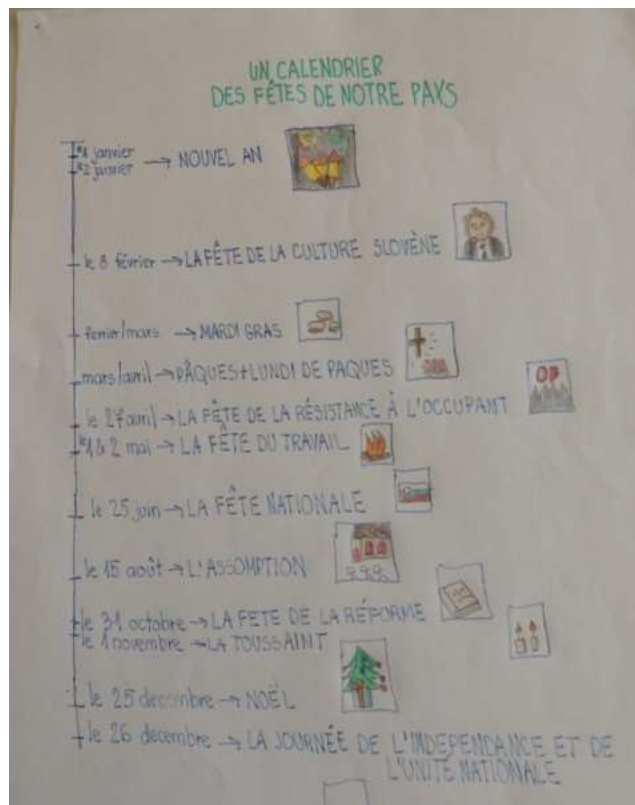 UN CALENDRIER
DES FÊTES DE NOTRE PAYS
le 1 janvier
le 2 janvier → NOUVEL AN
le 8 février → LA FÊTE DE LA CULTURE SLOVÈNE
fevrier/mars → MARDI GRAS
mars/avril → PÂQUES+LUNDI DE PAQUES
OF
le 27 avril → LA FÊTE DE LA RÉSISTANCE À L'OCCUPANT
le 1 & 2 mai → LA FÊTE DU TRAVAIL
le 25 juin → LA FÊTE NATIONALE
le 15 août → L'ASSOMPTION
le 31 octobre → LA FETE DE LA RÉFORME
le 1 novembre → LA TOUSSAINT
le 25 decembre → NOËL
le 26 decembre → LA JOURNÉE DE L'INDEPENDANCE ET DE
L'UNITÉ NATIONALE